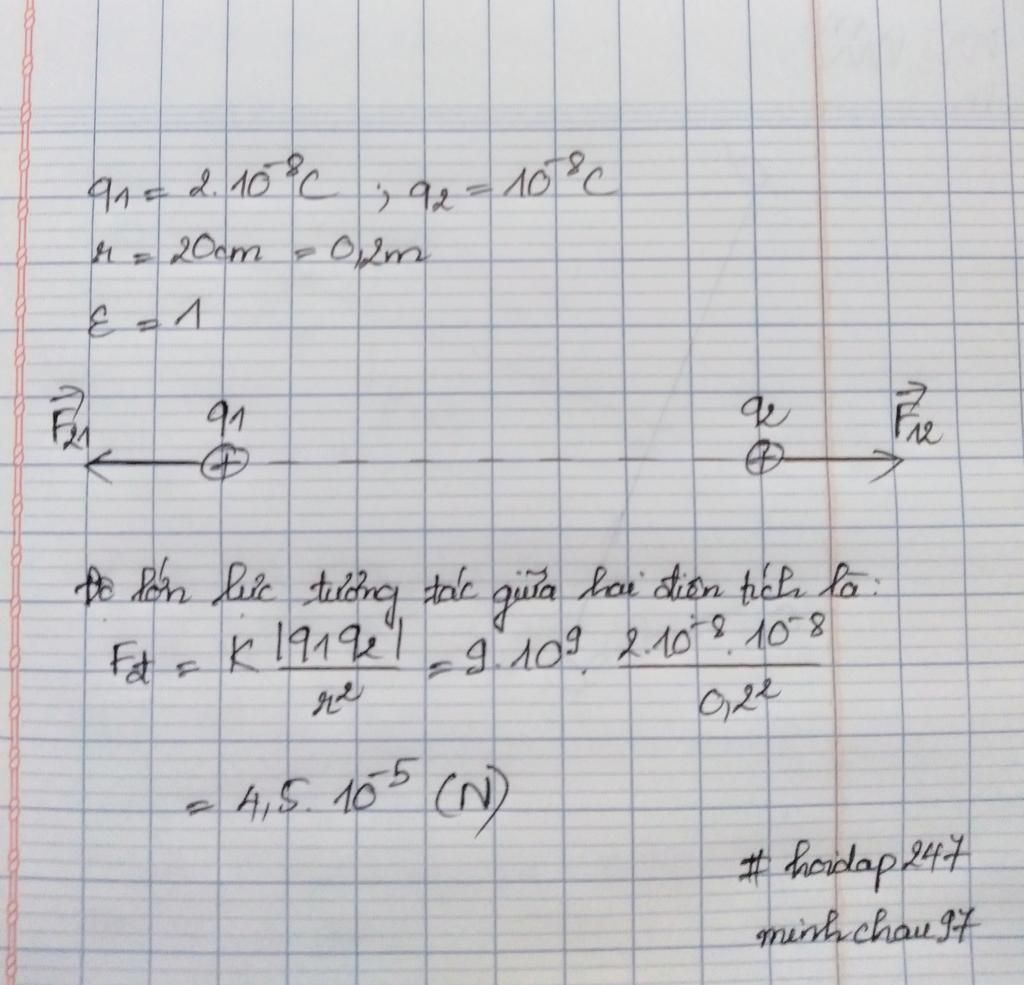 q₁ = 2.10⁻⁸C ; q₂ = 10⁻⁸C
r = 20cm = 0,2m
ε = 1
F⃗₂₁ q₁ q₂ F⃗₁₂
+ +
Độ lớn lực tương tác giữa hai điện tích là:
Fđt = K |q₁q₂| / r² = 9.10⁹. 2.10⁻⁸.10⁻⁸ / 0,2²
= 4,5.10⁻⁵ (N)
# hoidap247
minhchau97